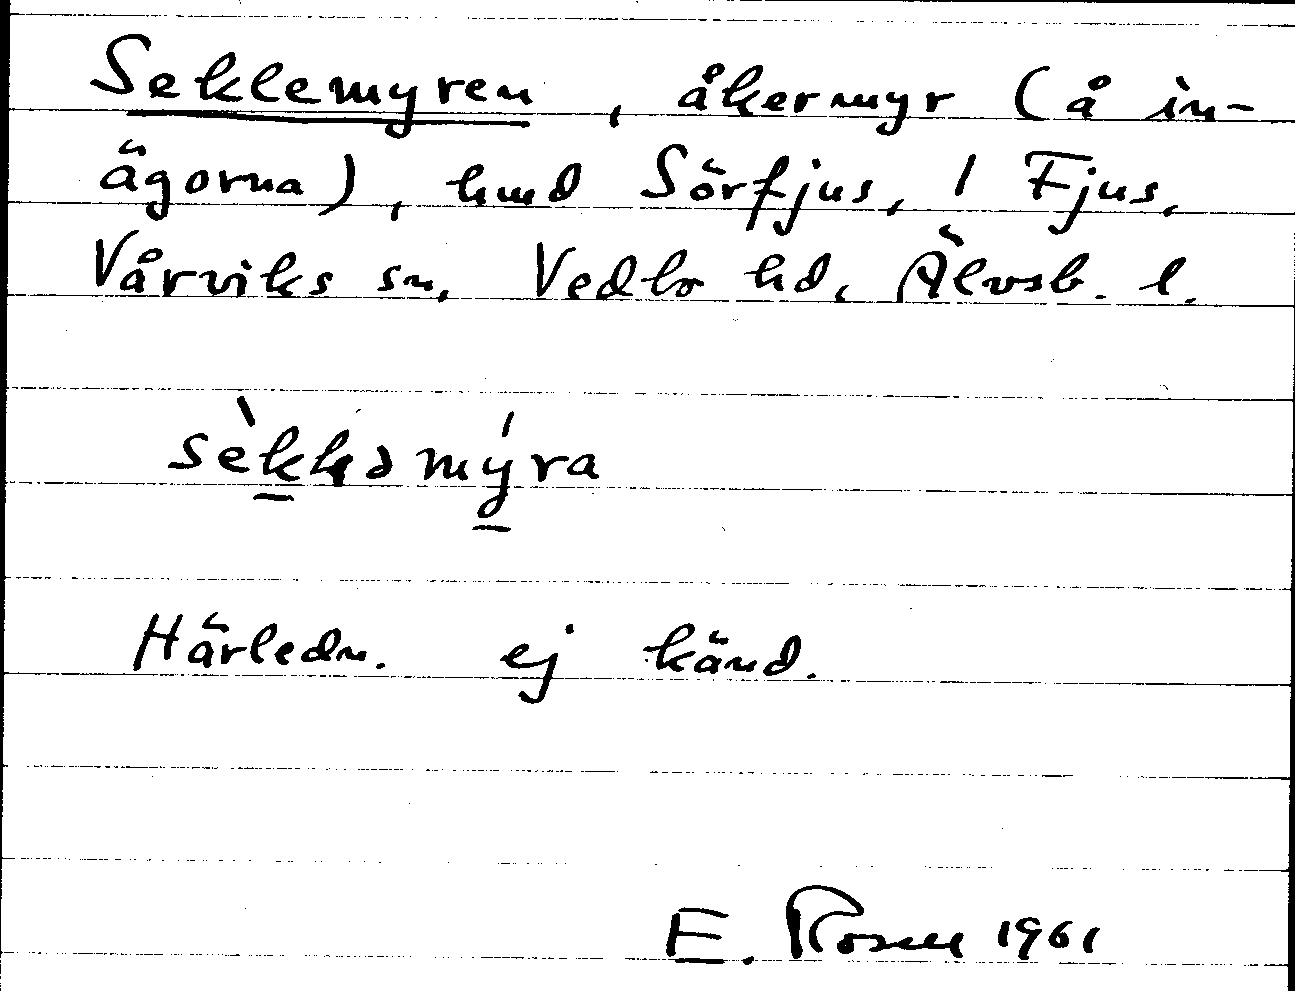 Seklemyren, åkermyr (å in-
ägorna), hmd Sörfjus, 1 Fjus,
Vårviks sn, Vedbo hd, Älvsb. l.
Härledn. ej känd.
E. Rosell 1961